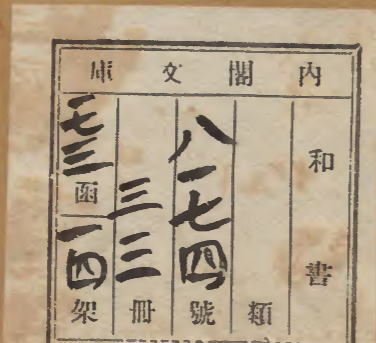 内閣文庫
和書
類
八一七四號
三三冊
七三函
一四架